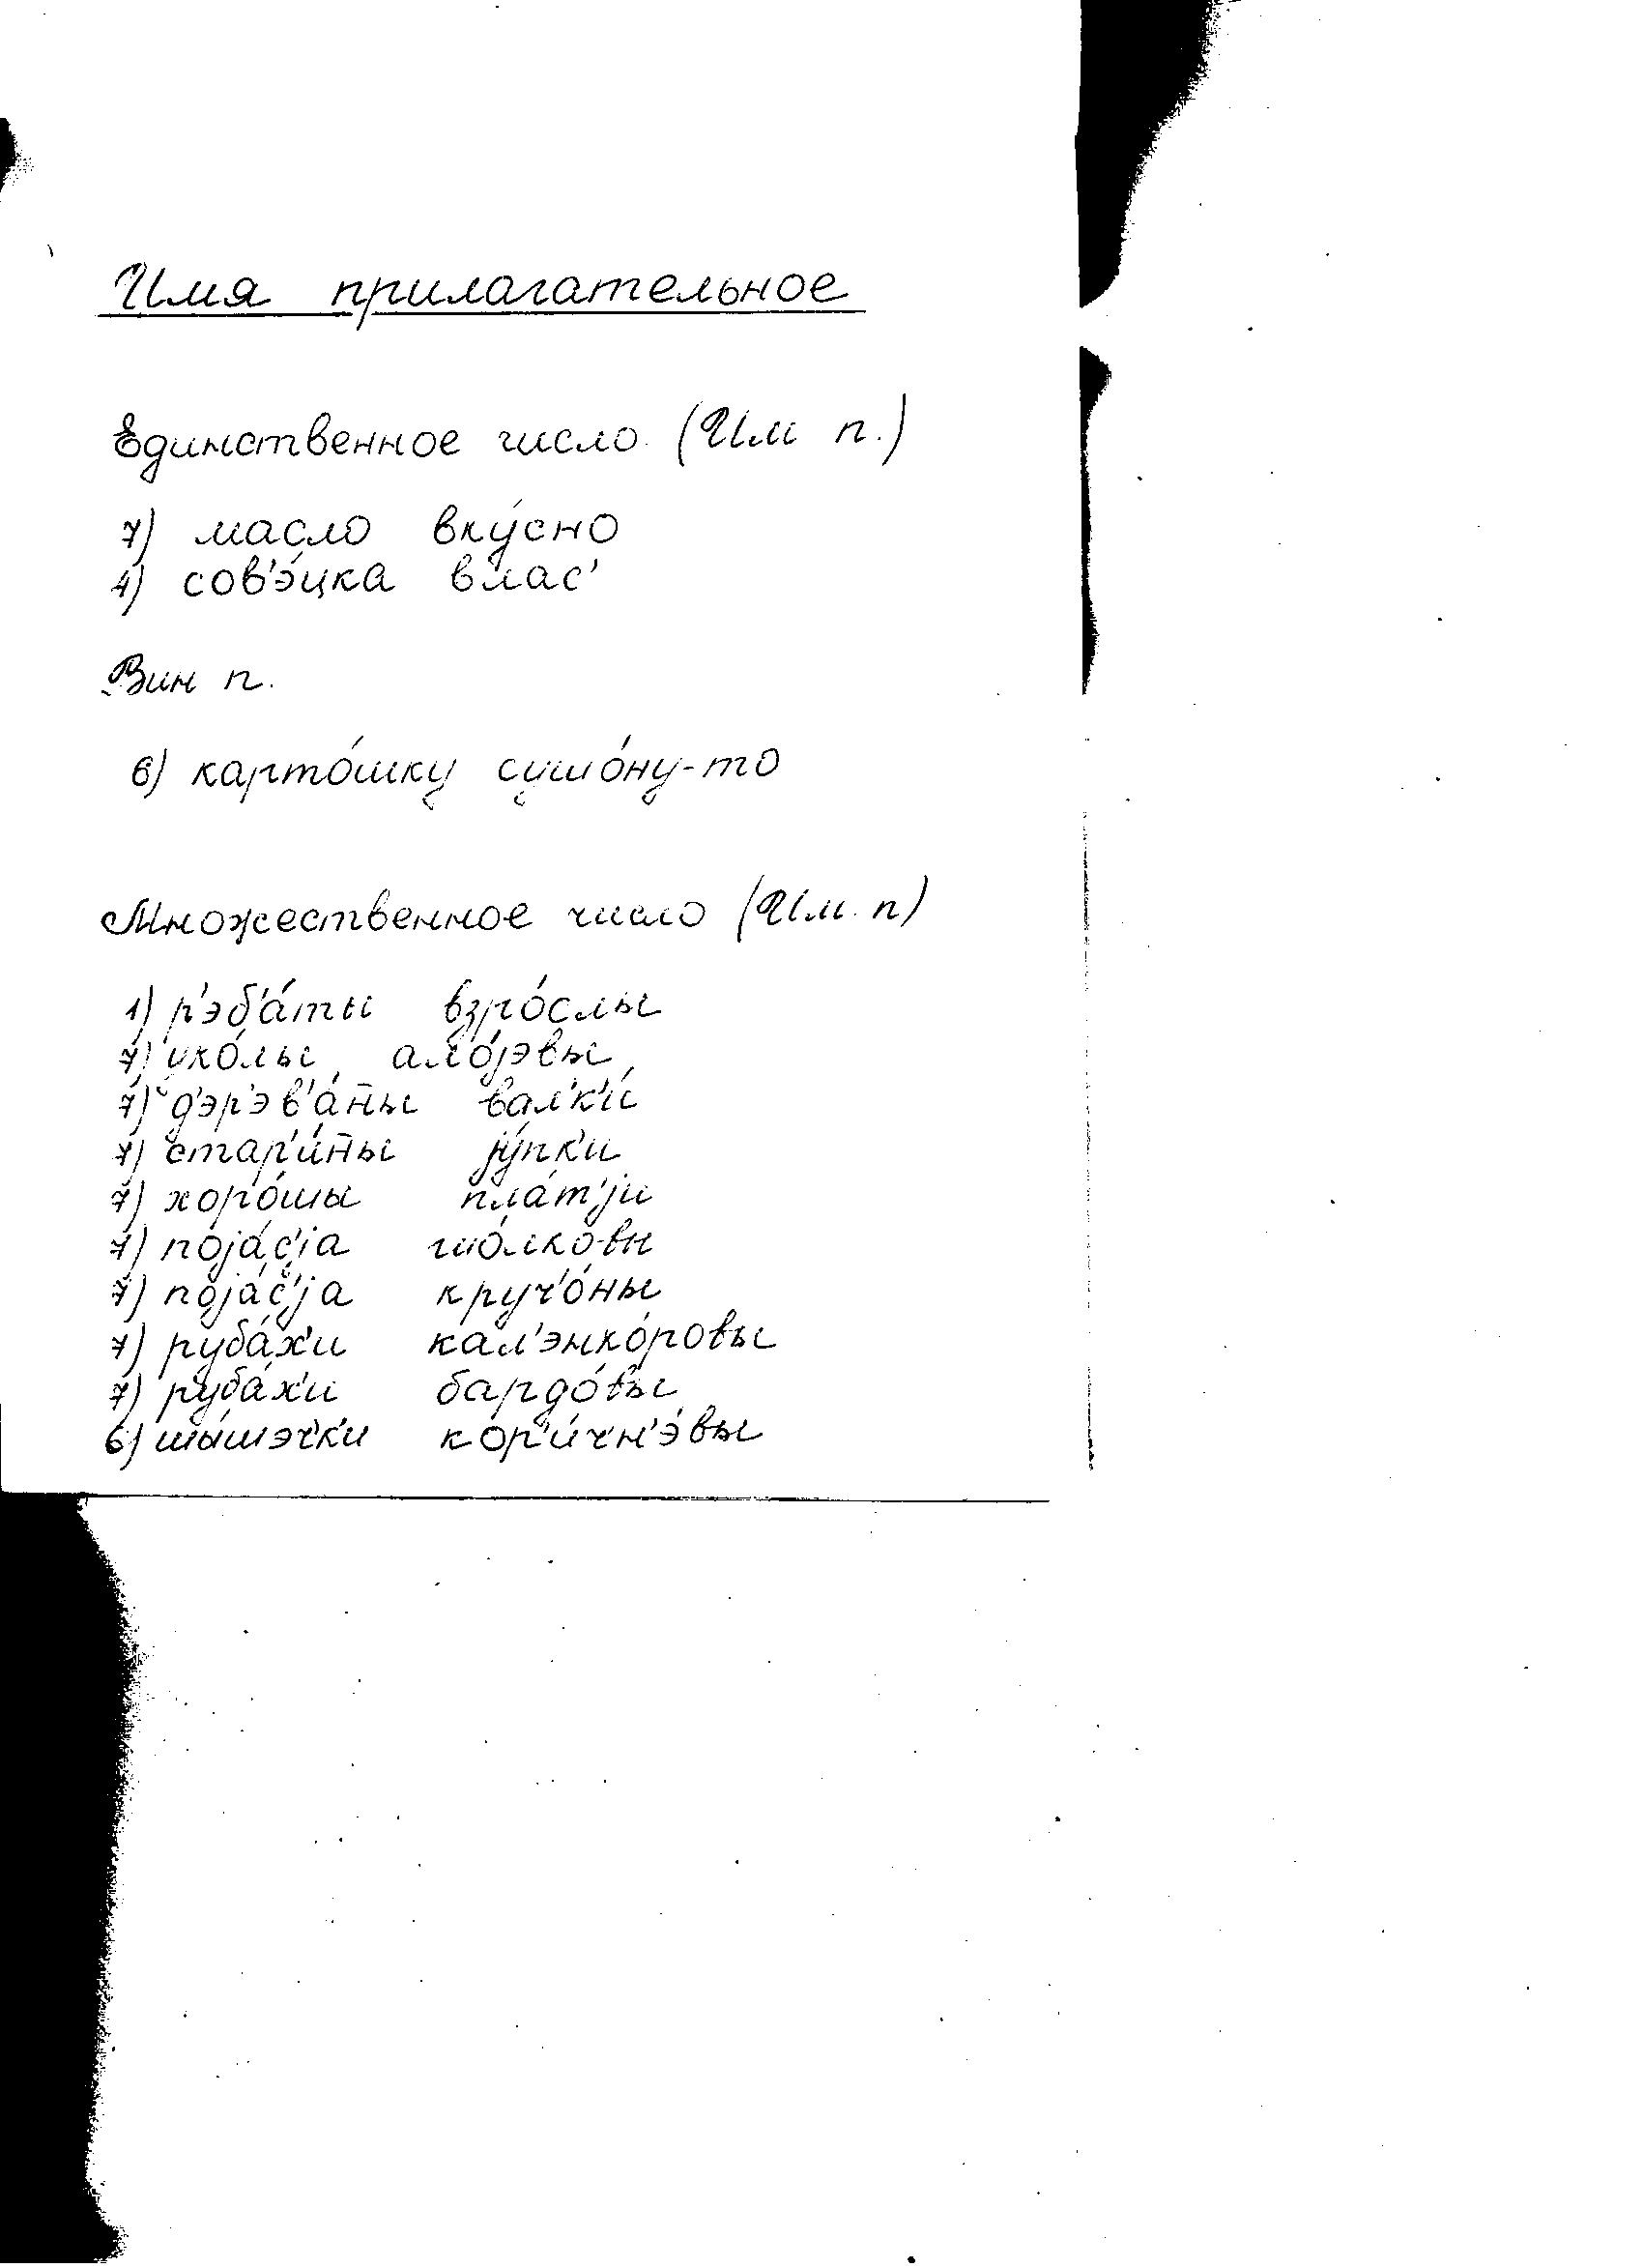 Имя прилагательное
Единственное число (Им п.)
7) масло вку́сно
4) сов'э́цка влас'
Вин п.
6) карто́шку сушо́ну-то
Множественное число (Им. п)
1) р'эб'а́ты взро́слы
7) уко́лы ало́јэвы
7) д'эр'эв'а́н̄ы вал'к'и́
7) стар'и́н̄ы јӳ́пк'и
7) хоро́шы пла́т'ји
7) појас'јa шо́лковы
7) појас'ја круч'о́ны
7) руба́х'и кал'энко́ровы
7) руба́х'и бардо́вы
6) шы́шэчк'и кор'и́чн'э́вы